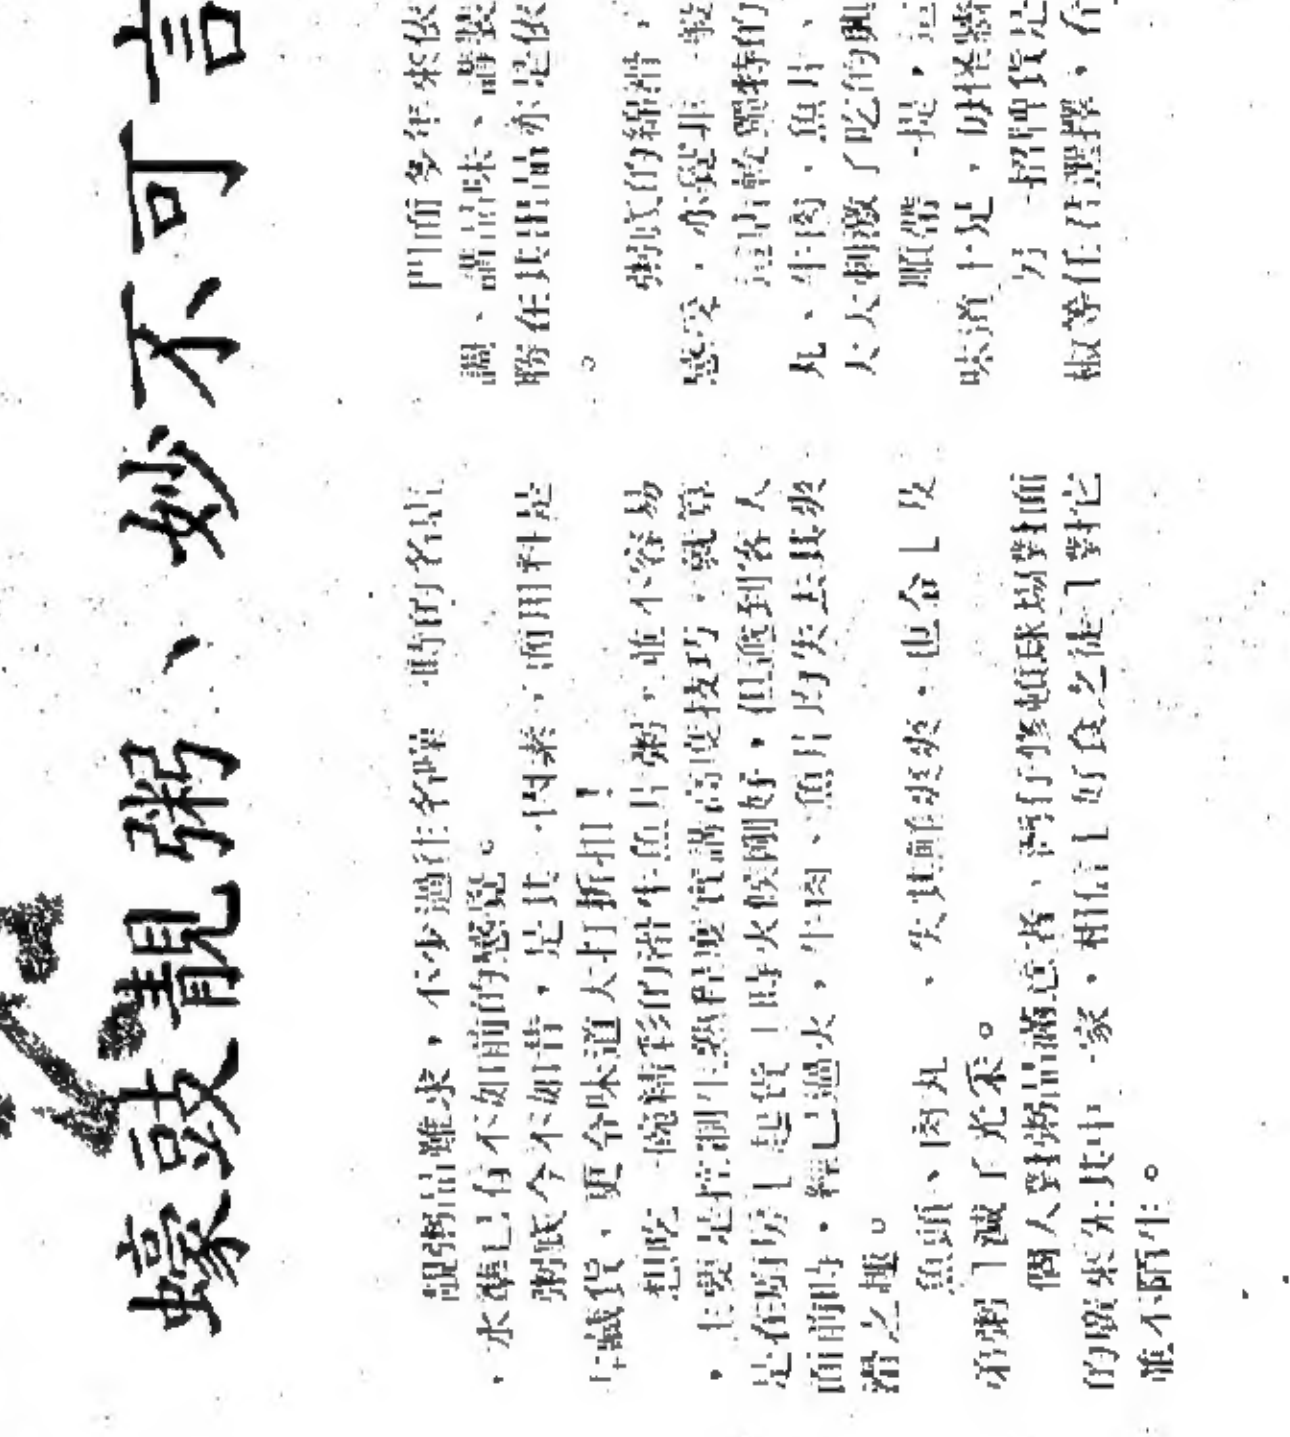 蠔豉靚粥、妙不可言
靚粥品難求，不少過往名噪一時的名店
，水準已有不如前的感覺。
粥底今不如昔，是其一因素，而用料是
否識貨、更令味道大打折扣！
想吃一碗精彩的滑牛魚片粥，並不容易
，主要是控制生熟程度實講高度技巧，就算
是在廚房上起貨時火候剛好，但遞到客人
面前時，經已過火，牛肉、魚片均失去其爽
滑之趣。
魚頭、肉丸、失其鮮爽爽，也令上及
第粥減了光采。
個人對粥品滿意者、灣仔修頓球場對面
的 其中一家，相信好食之徒對它
並不陌生。
門面多年來依
調、講品味、講裝
勝在其出品亦是依
。
粥底的綿滑，
感受，亦絕非一般
這店較獨特的
丸、牛肉、魚片、
大大刺激了吃的興
順帶一提，這
味道十足，
另一招牌貨是
椒等任君選擇，有